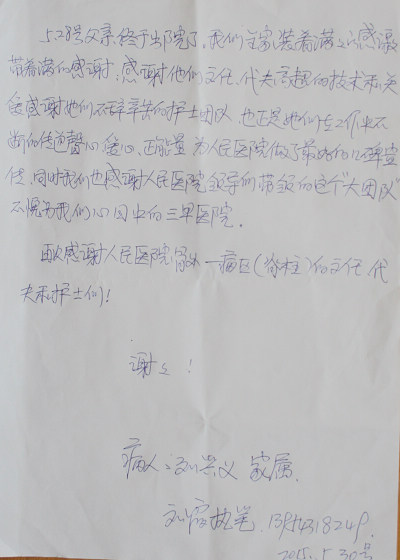 5.28号父亲终于出院了,我们全家装着满满的感激
带着满的感谢:感谢他们主任、代大夫高超的技术和关
爱感谢她们不辞辛苦的护士团队,也正是她们在工作中不
断的传递着心爱心、正能量 为人民医院做了最好的口碑宣
传,同时我们也感谢人民医院领导们带领的这个"大团队"
不愧为我们心目中的三甲医院。
再次感谢人民医院骨外一病区(脊柱)的主任、代
夫和护士们!
谢谢!
病人:刘兴义 家属。
刘 执笔.
2015. 5 30号